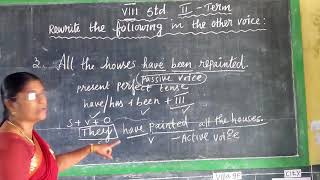 VIII Std II - Term
Rewrite the following in the other voice:
2. All the houses have been repainted.
Passive voice
present perfect tense
have/has + been + III
S + V + O
They have painted all the houses.
V - Active voice
Village CITY